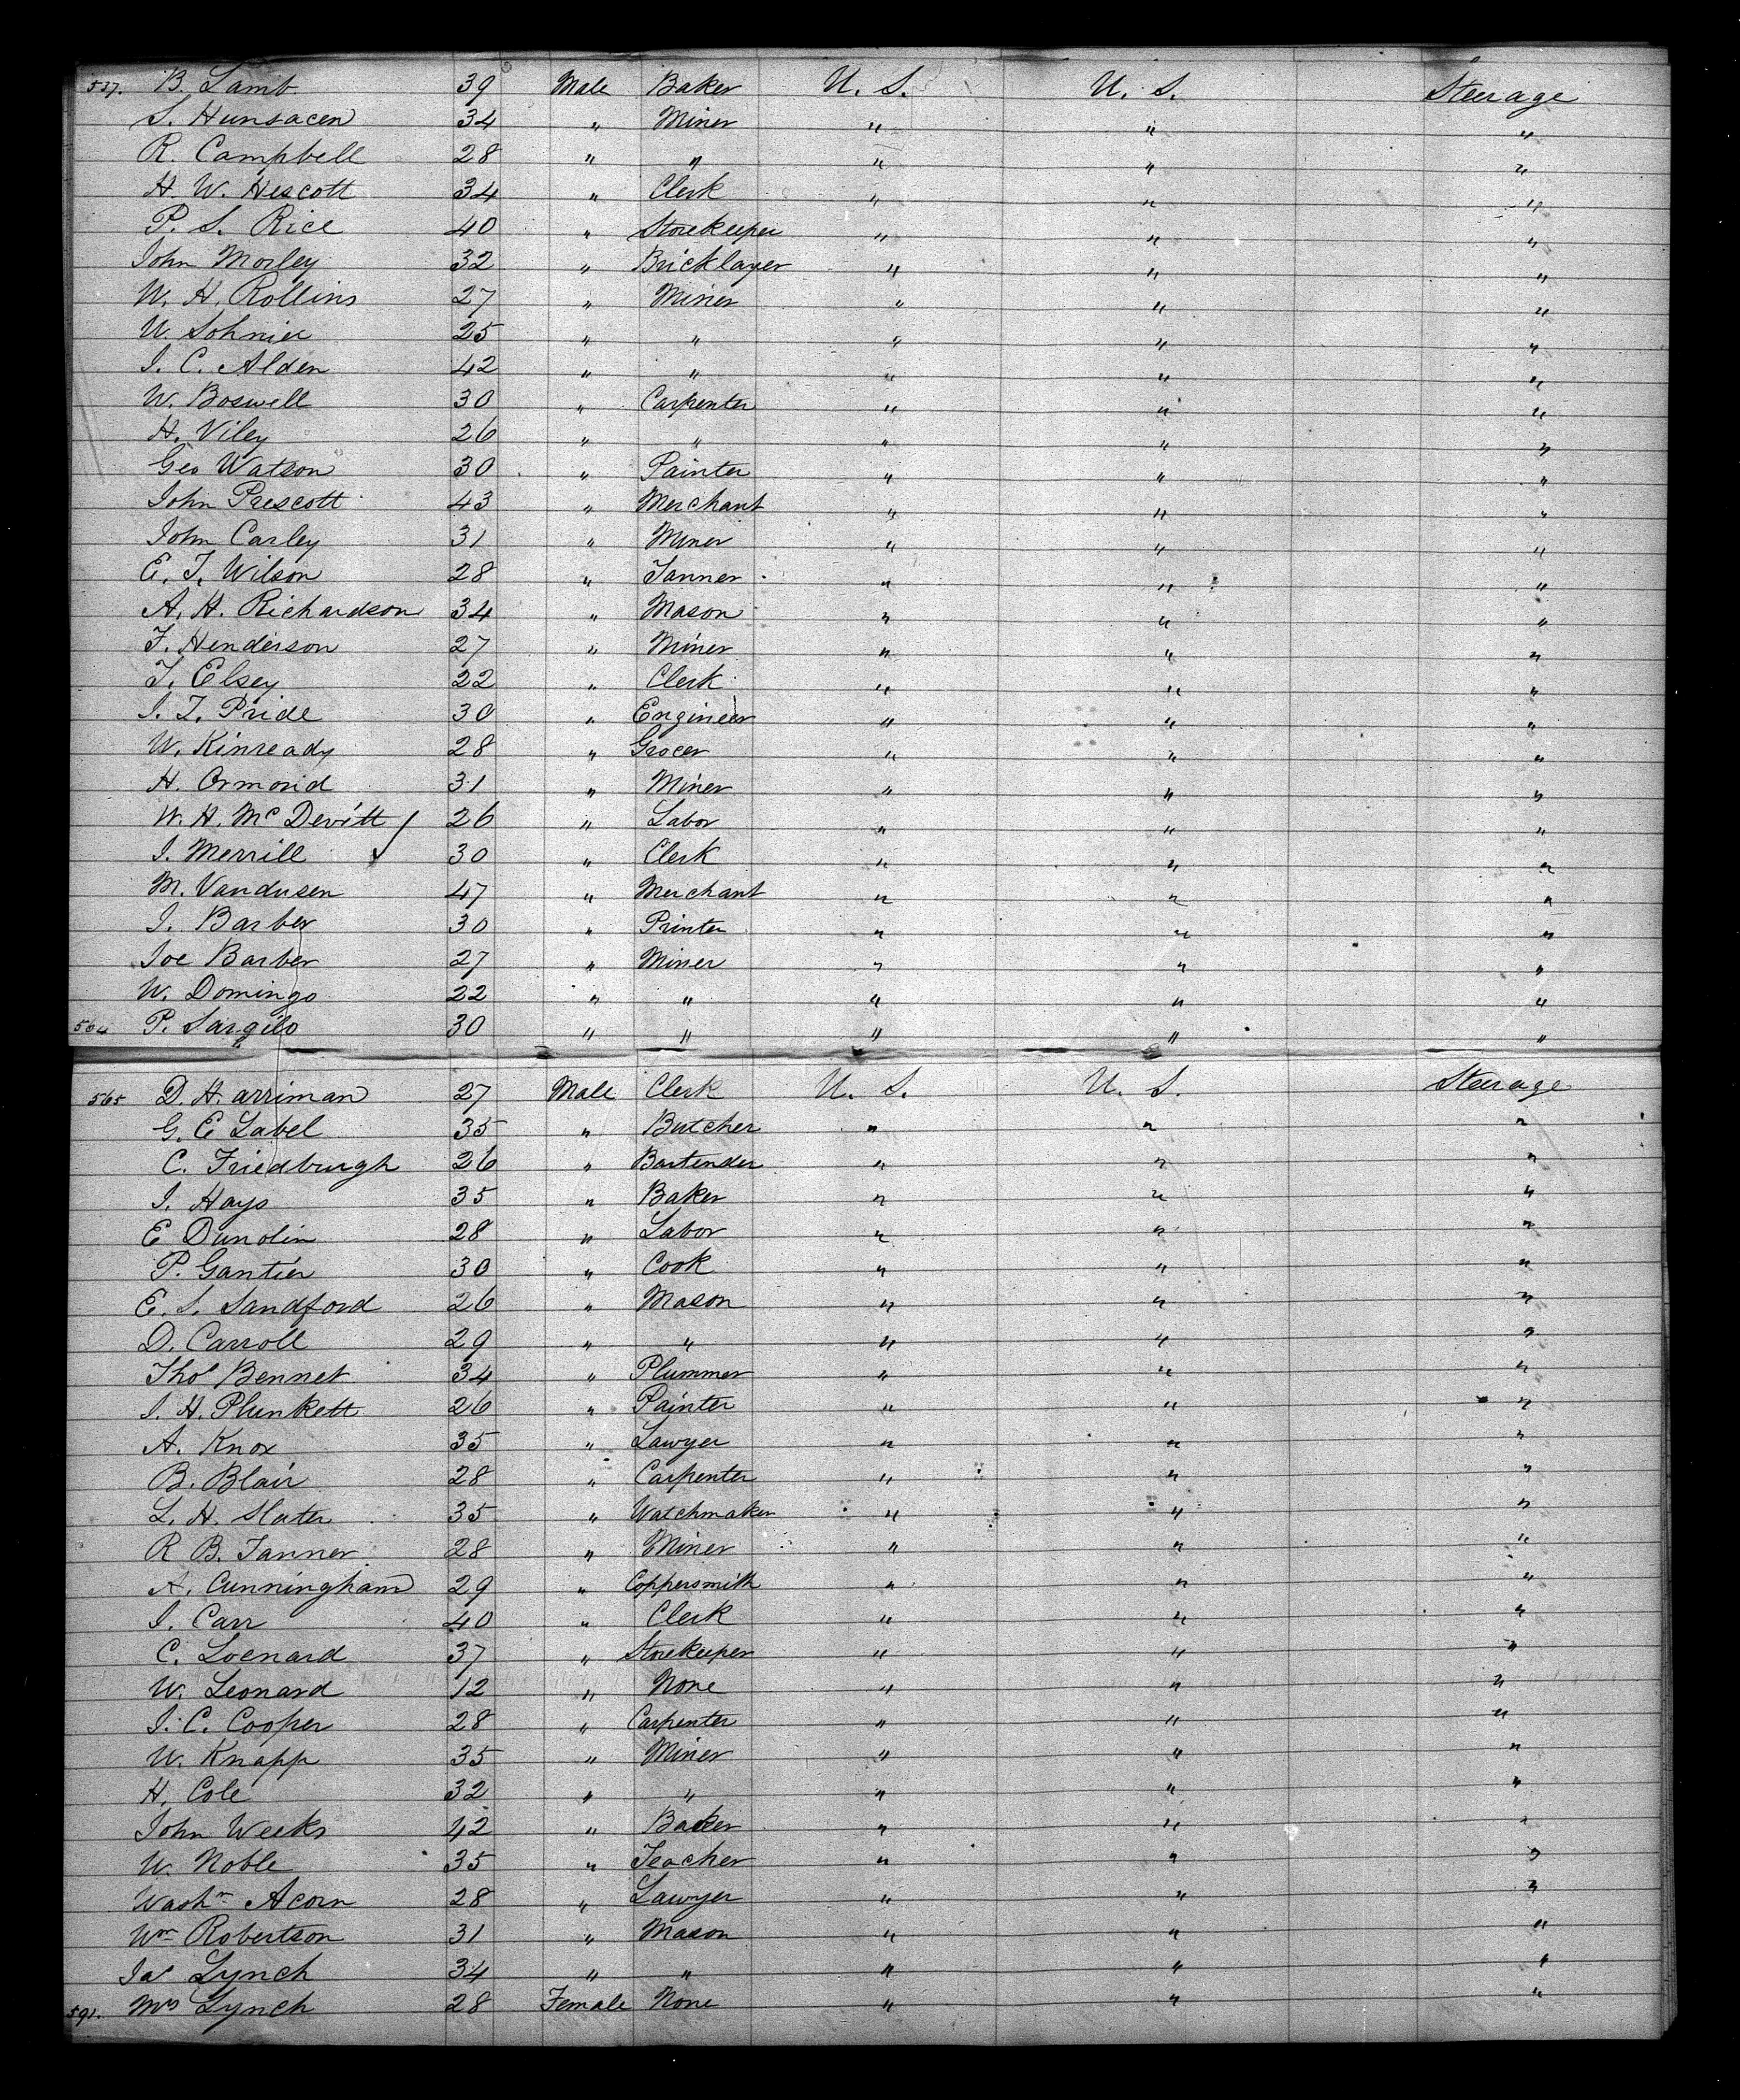 537. B. Lamb 39 Male Baker U. S. U. S. Steerage
S. Hunsacen 34 " Miner " " "
R. Campbell 28 " " " " "
H. W. Hescott 34 " Clerk " " "
P. S. Rice 40 " Storekeeper " " "
John Morley 32 " Bricklayer " " "
W. H. Rollins 27 " Miner " " "
W. Sohnier 25 " " " " "
I. C. Alden 42 " " " " "
W. Boswell 30 " Carpenter " " "
H. Viley 26 " " " " "
Geo Watson 30 " Painter " " "
John Prescott 43 " Merchant " " "
John Carley 31 " Miner " " "
E. T. Wilson 28 " Tanner " " "
A. H. Richardson 34 " Mason " " "
F. Henderson 27 " Miner " " "
T. Elsey 22 " Clerk " " "
I. T. Pride 30 " Engineer " " "
W. Kinready 28 " Grocer " " "
H. Ormond 31 " Miner " " "
W. H. McDevitt 26 " Labor " " "
I. Merrill 30 " Clerk " " "
M. Vandusen 47 " Merchant " " "
I. Barber 30 " Printer " " "
Joe Barber 27 " Miner " " "
W. Domingo 22 " " " " "
564 P. Sargilo 30 " " " " "
565 D. Harriman 27 Male Clerk U. S. U. S. Steerage
G. E Label 35 " Butcher " " "
C. Friedburgh 26 " Bartender " " "
I. Hays 35 " Baker " " "
E Dunolin 28 " Labor " " "
P. Gantier 30 " Cook " " "
E. S. Sandford 26 " Mason " " "
D. Carroll 29 " " " " "
Thos Bennet 34 " Plummer " " "
I. H. Plunkett 26 " Painter " " "
A. Knox 35 " Lawyer " " "
B. Blair 28 " Carpenter " " "
L. H. Slater 35 " Watchmaker " " "
R B. Tanner 28 " Miner " " "
A. Cunningham 29 " Coppersmith " " "
I. Carr 40 " Clerk " " "
C. Loenard 37 " Storekeeper " " "
W. Leonard 12 " None " " "
I. C. Cooper 28 " Carpenter " " "
W. Knapp 35 " Miner " " "
H. Cole 32 " " " " "
John Weeks 42 " Baker " " "
W. Noble 35 " Teacher " " "
Washn Acorn 28 " Lawyer " " "
Wm Robertson 31 " Mason " " "
Jas Lynch 34 " " " " "
591. Mrs Lynch 28 Female None " " "